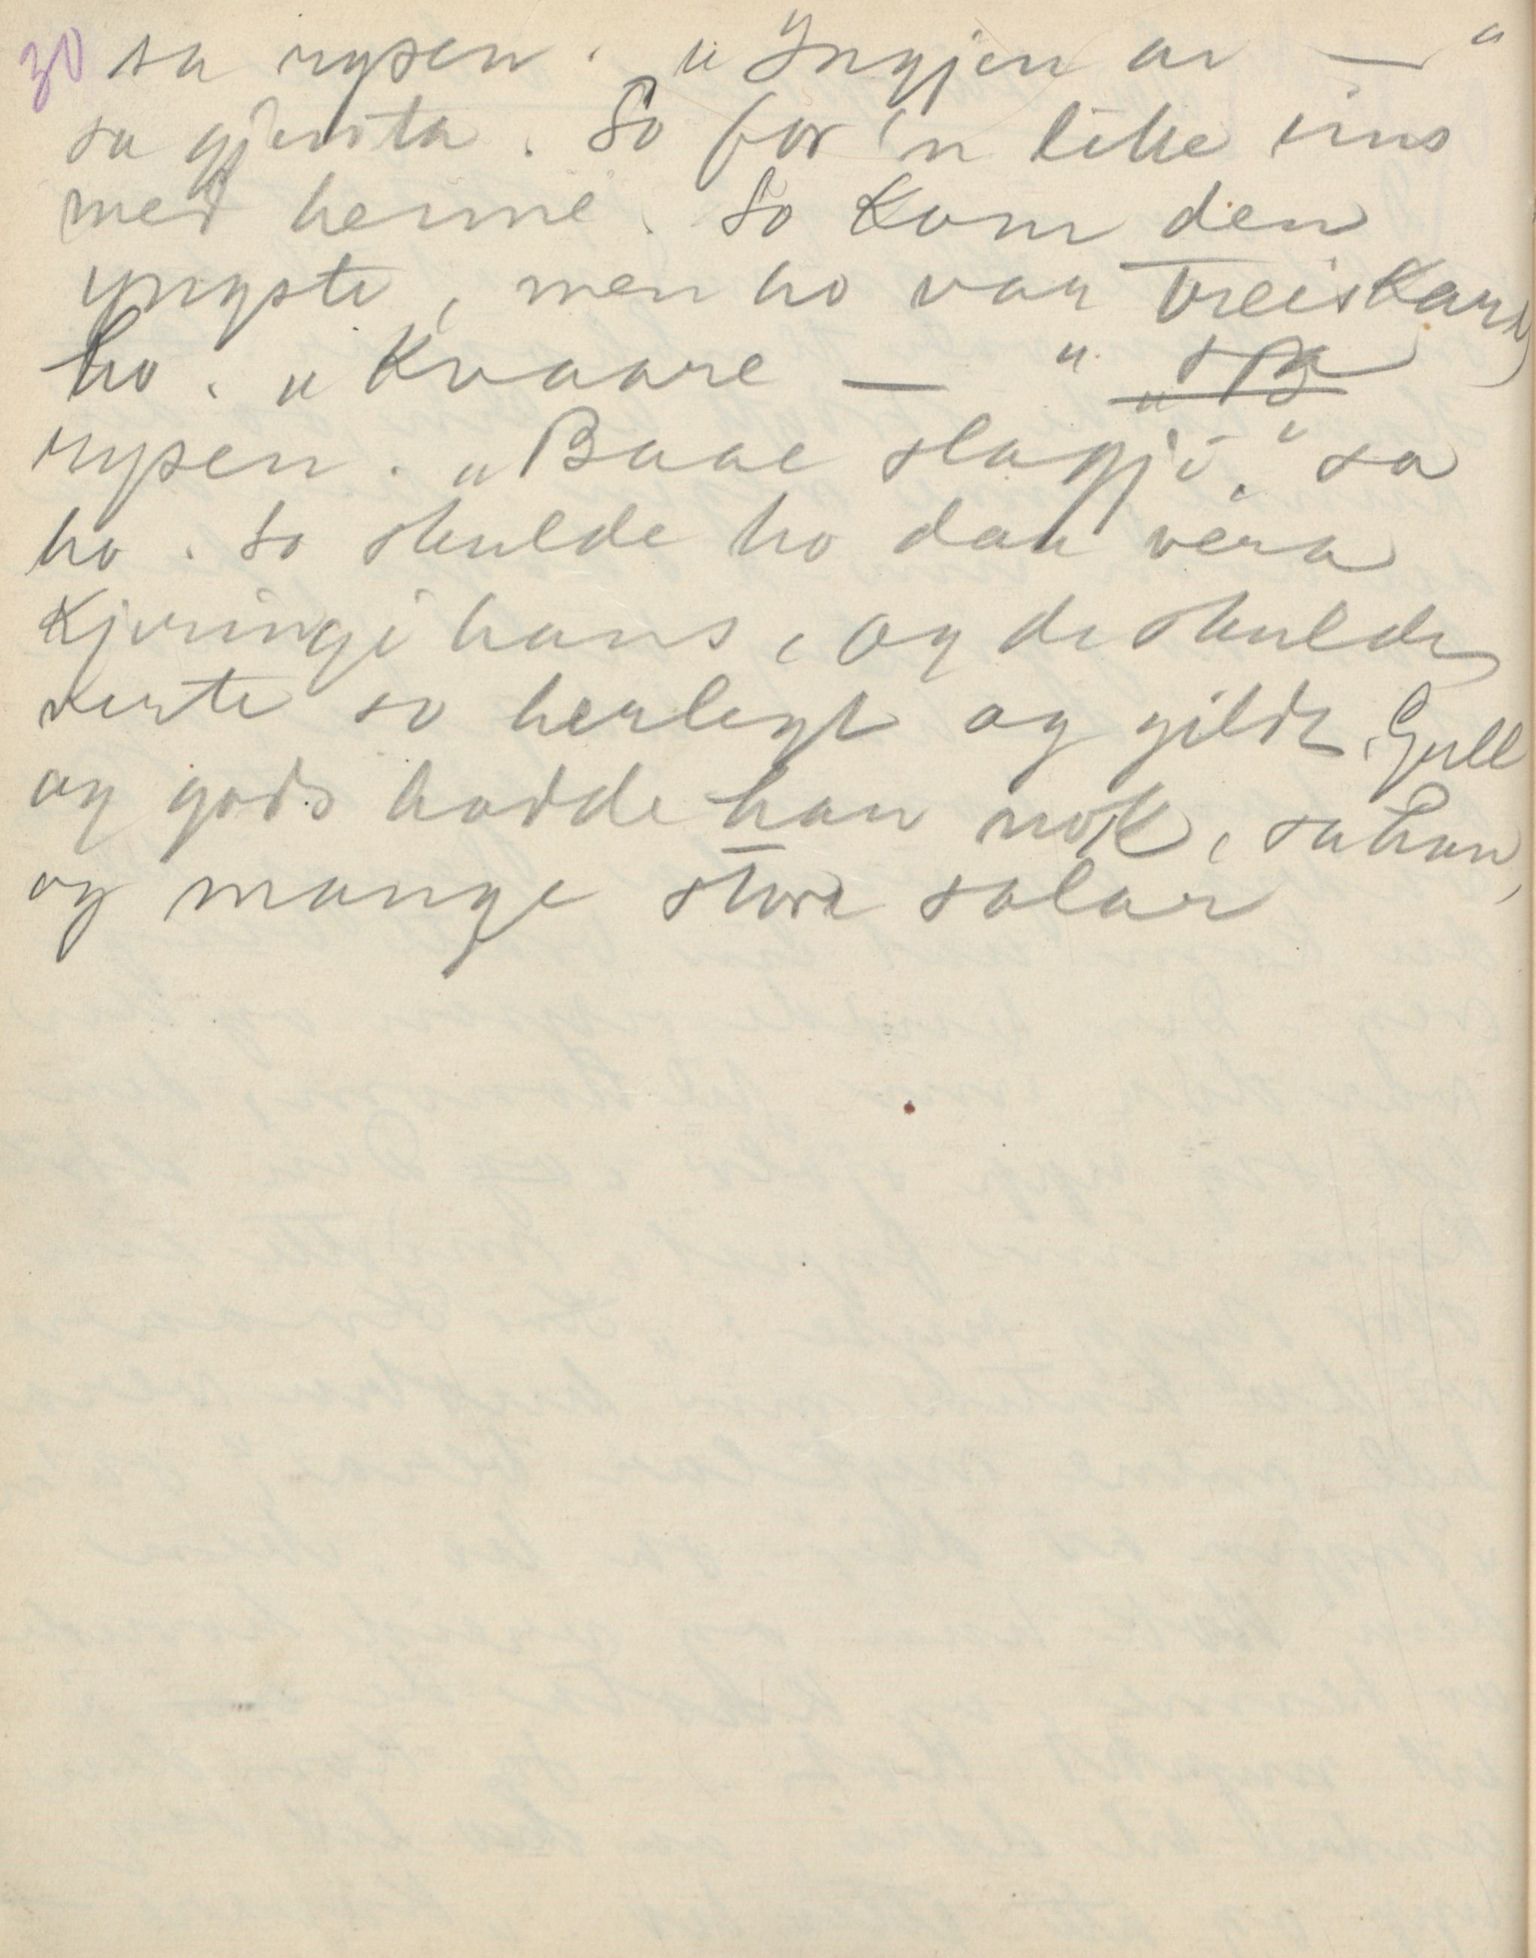 30 sa rysen. „Ingjen av — “
sa gjenta. So for 'n like eins
med henne. So kom den
yngste, men ho var treiskare,
ho. „Kvaare — “ „sa
rysen. „Baae slagji,“ sa
ho. So skulde ho daa vera
kjeringi hans, og de skulde
verte so herlegt og gildt. Gull
og gods hadde han nok, sa han,
og mange store salar